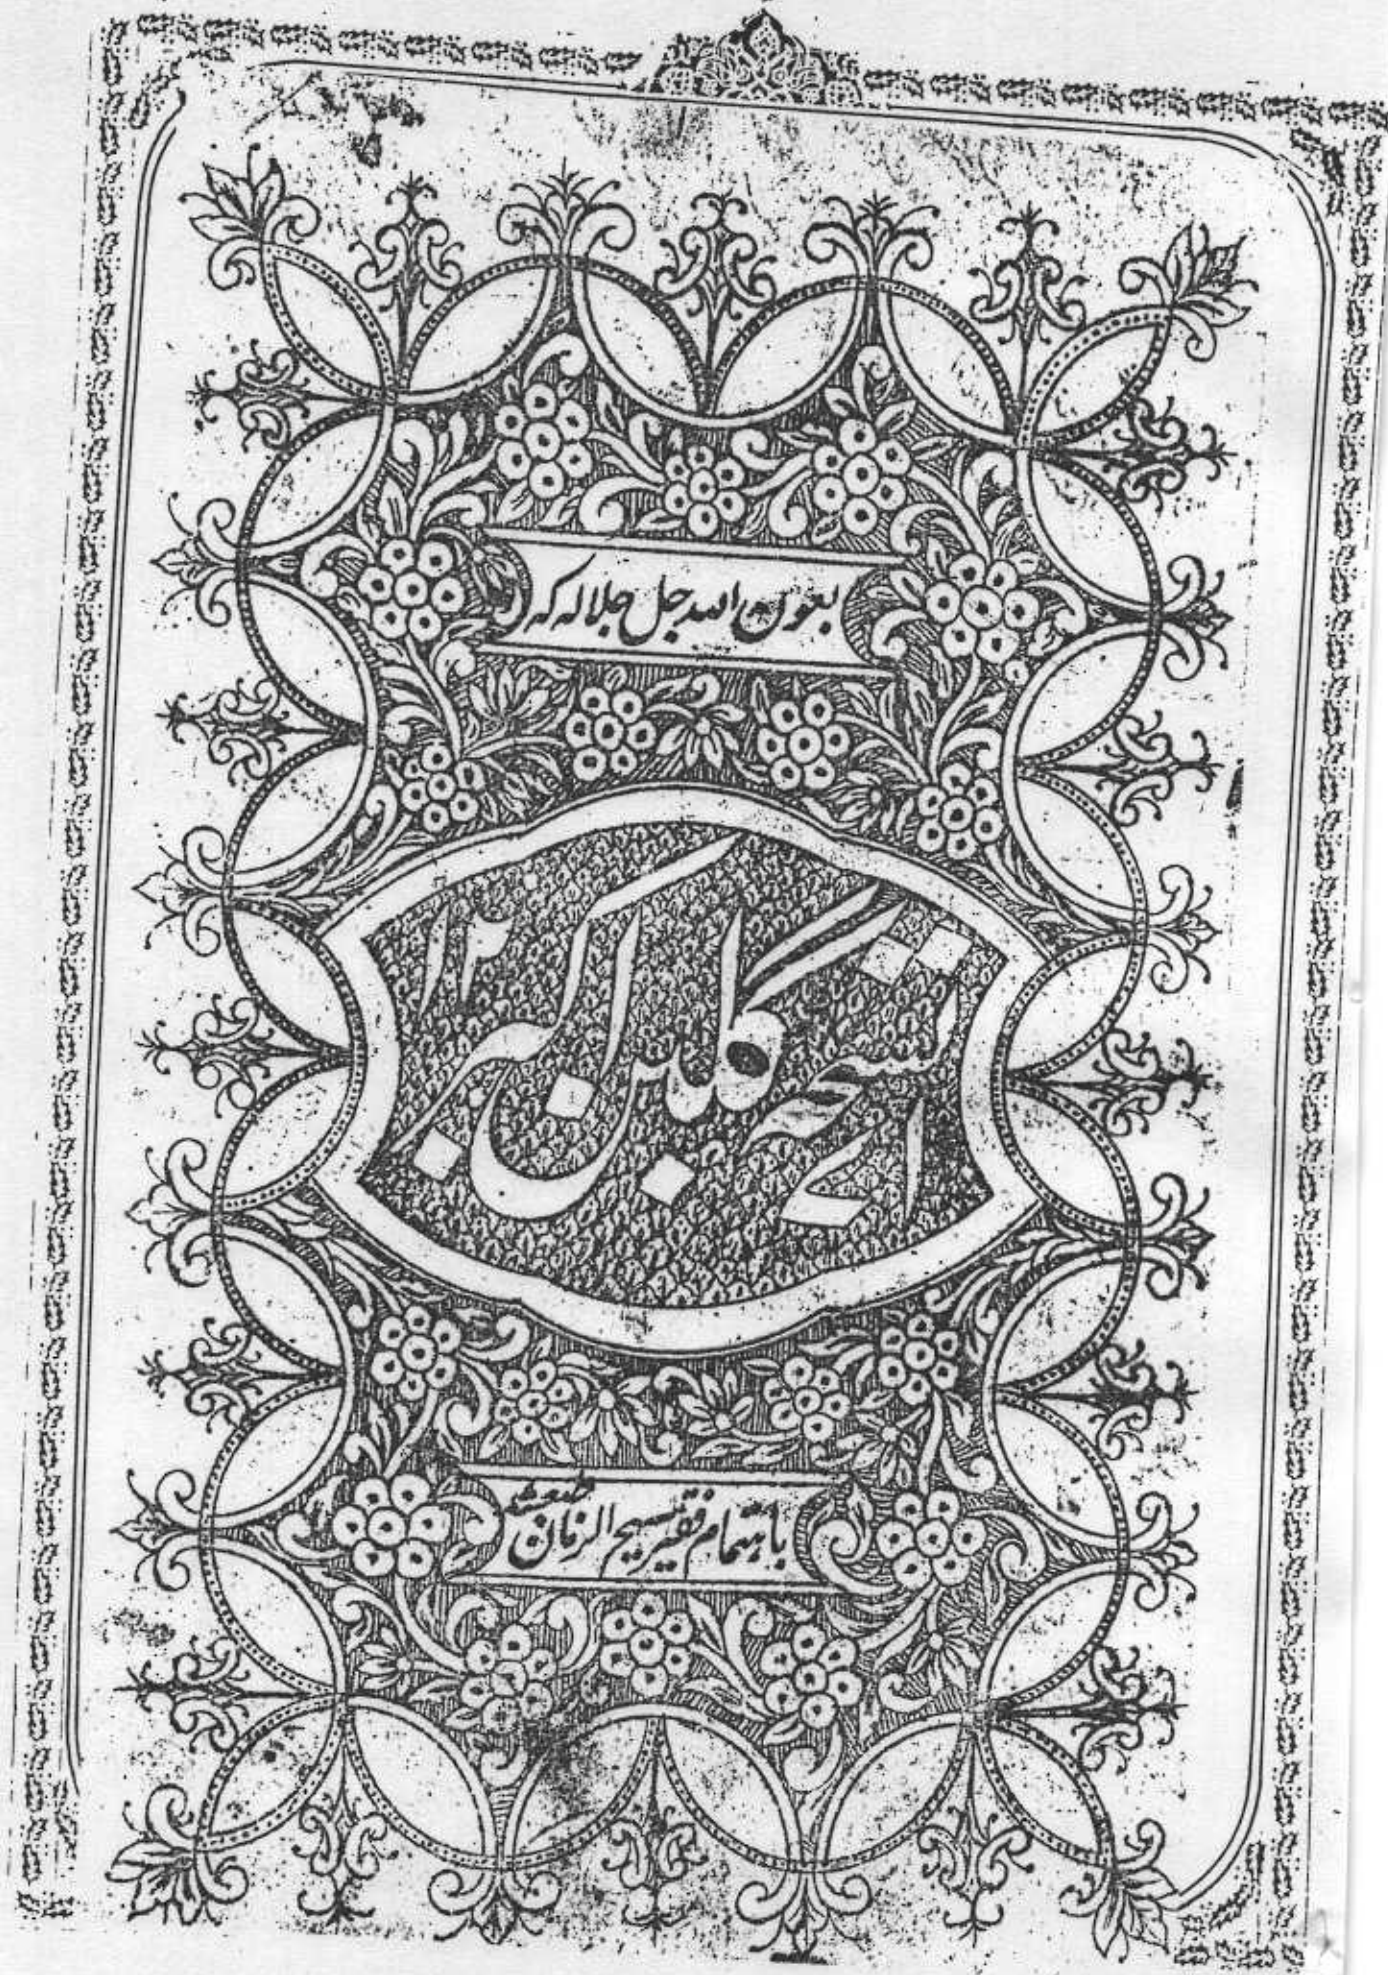 بعون اللہ جل جلالہ کہ
نسخہ
گلبن اکبر
۱۲
باہتمام فقیر مسیح الزمان